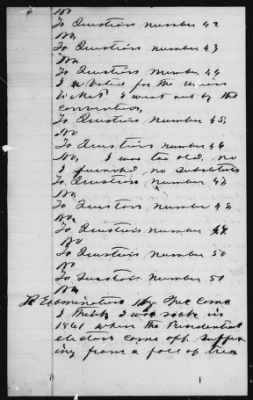 No
To Question number 42
No,
To Question number 43
No
To Question number 44
I voted for the union
ticket I went out by the
convention,
To Question number 45,
No
To Question number 46
No, I was too old, no
I furnished no substitute
To Question number 47
No,
To Question number 48
No,
To Question number 49
No
To Question number 50
No
To Question number 51
No
Re Examination by Spe Com
I think I was sick in
1861 when the Presidential
electors come off. Suffer
ing from a fall of